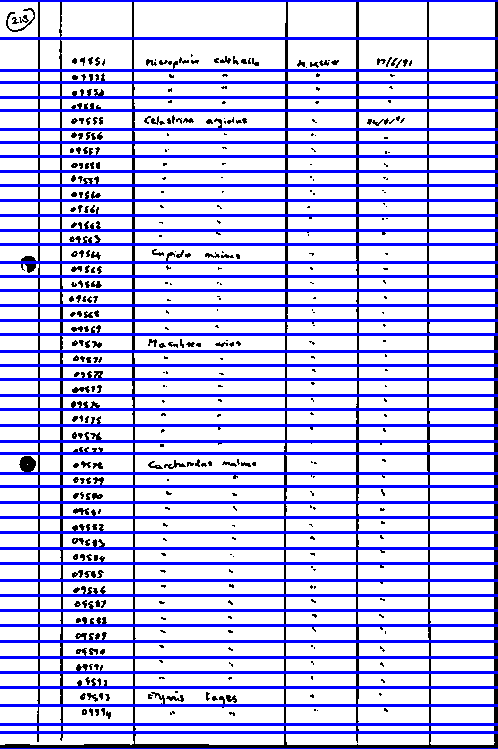 213
09551 M/5/91
09552 " " " "
09553 " " " "
09554 " " " "
09555 Celastrina argiolus "
09556 " " " "
09557 " " " "
09558 " " " "
09559 " " " "
09560 " " " "
09561 " " " "
09562 " " " "
09563 " " " "
09564 Cupido minimus " "
09565 " " " "
09566 " " " "
09567 " " " "
09568 " " " "
09569 " " " "
09570 Maculinea arion " "
09571 " " " "
09572 " " " "
09573 " " " "
09574 " " " "
09575 " " " "
09576 " " " "
09577 " " " "
09578 " "
09579 " " " "
09580 " " " "
09581 " " " "
09582 " " " "
09583 " " " "
09584 " " " "
09585 " " " "
09586 " " " "
09587 " " " "
09588 " " " "
09589 " " " "
09590 " " " "
09591 " " " "
09592 " " " "
09593 Erynnis tages " "
09594 " " " "